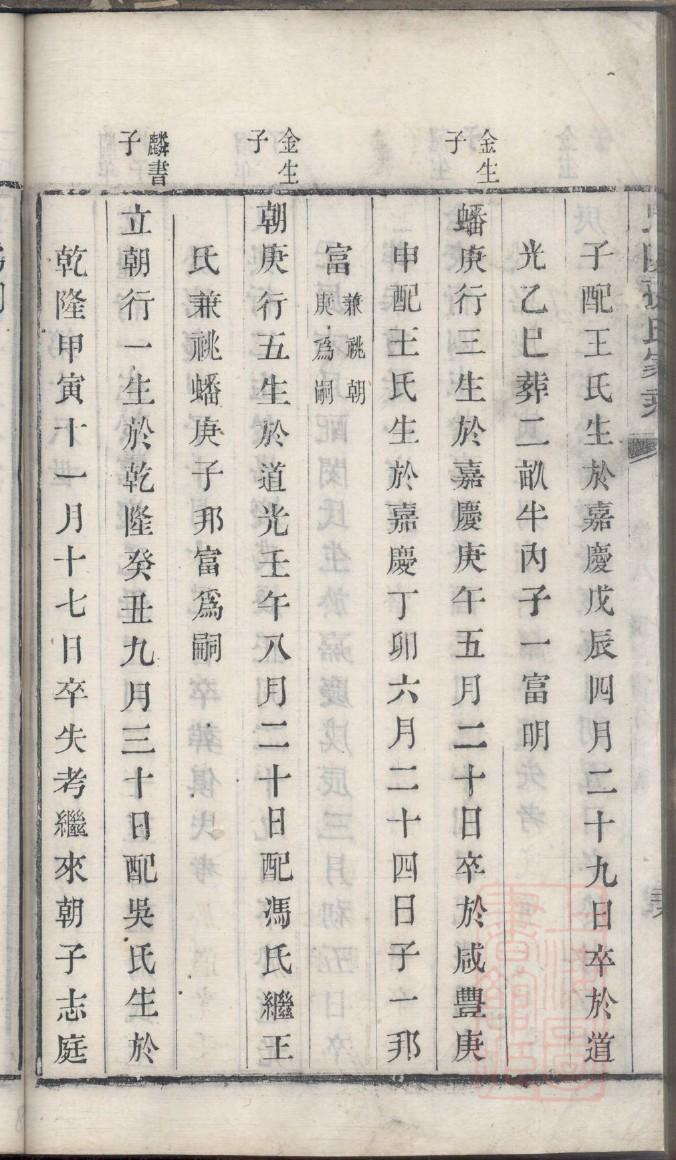 子配王氏生於嘉慶戊辰四月二十九日卒於道
光乙巳葬二畝半內子一富明
金生
子
蟠庚行三生於嘉慶庚午五月二十日卒於咸豐庚
申配王氏生於嘉慶丁卯六月二十四日子一邦
富
兼祧朝
庚爲嗣
金生
子
朝庚行五生於道光壬午八月二十日配馮氏繼王
氏兼祧蟠庚子邦富爲嗣
麟書
子
立朝行一生於乾隆癸丑九月三十日配吳氏生於
乾隆甲寅十一月十七日卒失考繼來朝子志庭